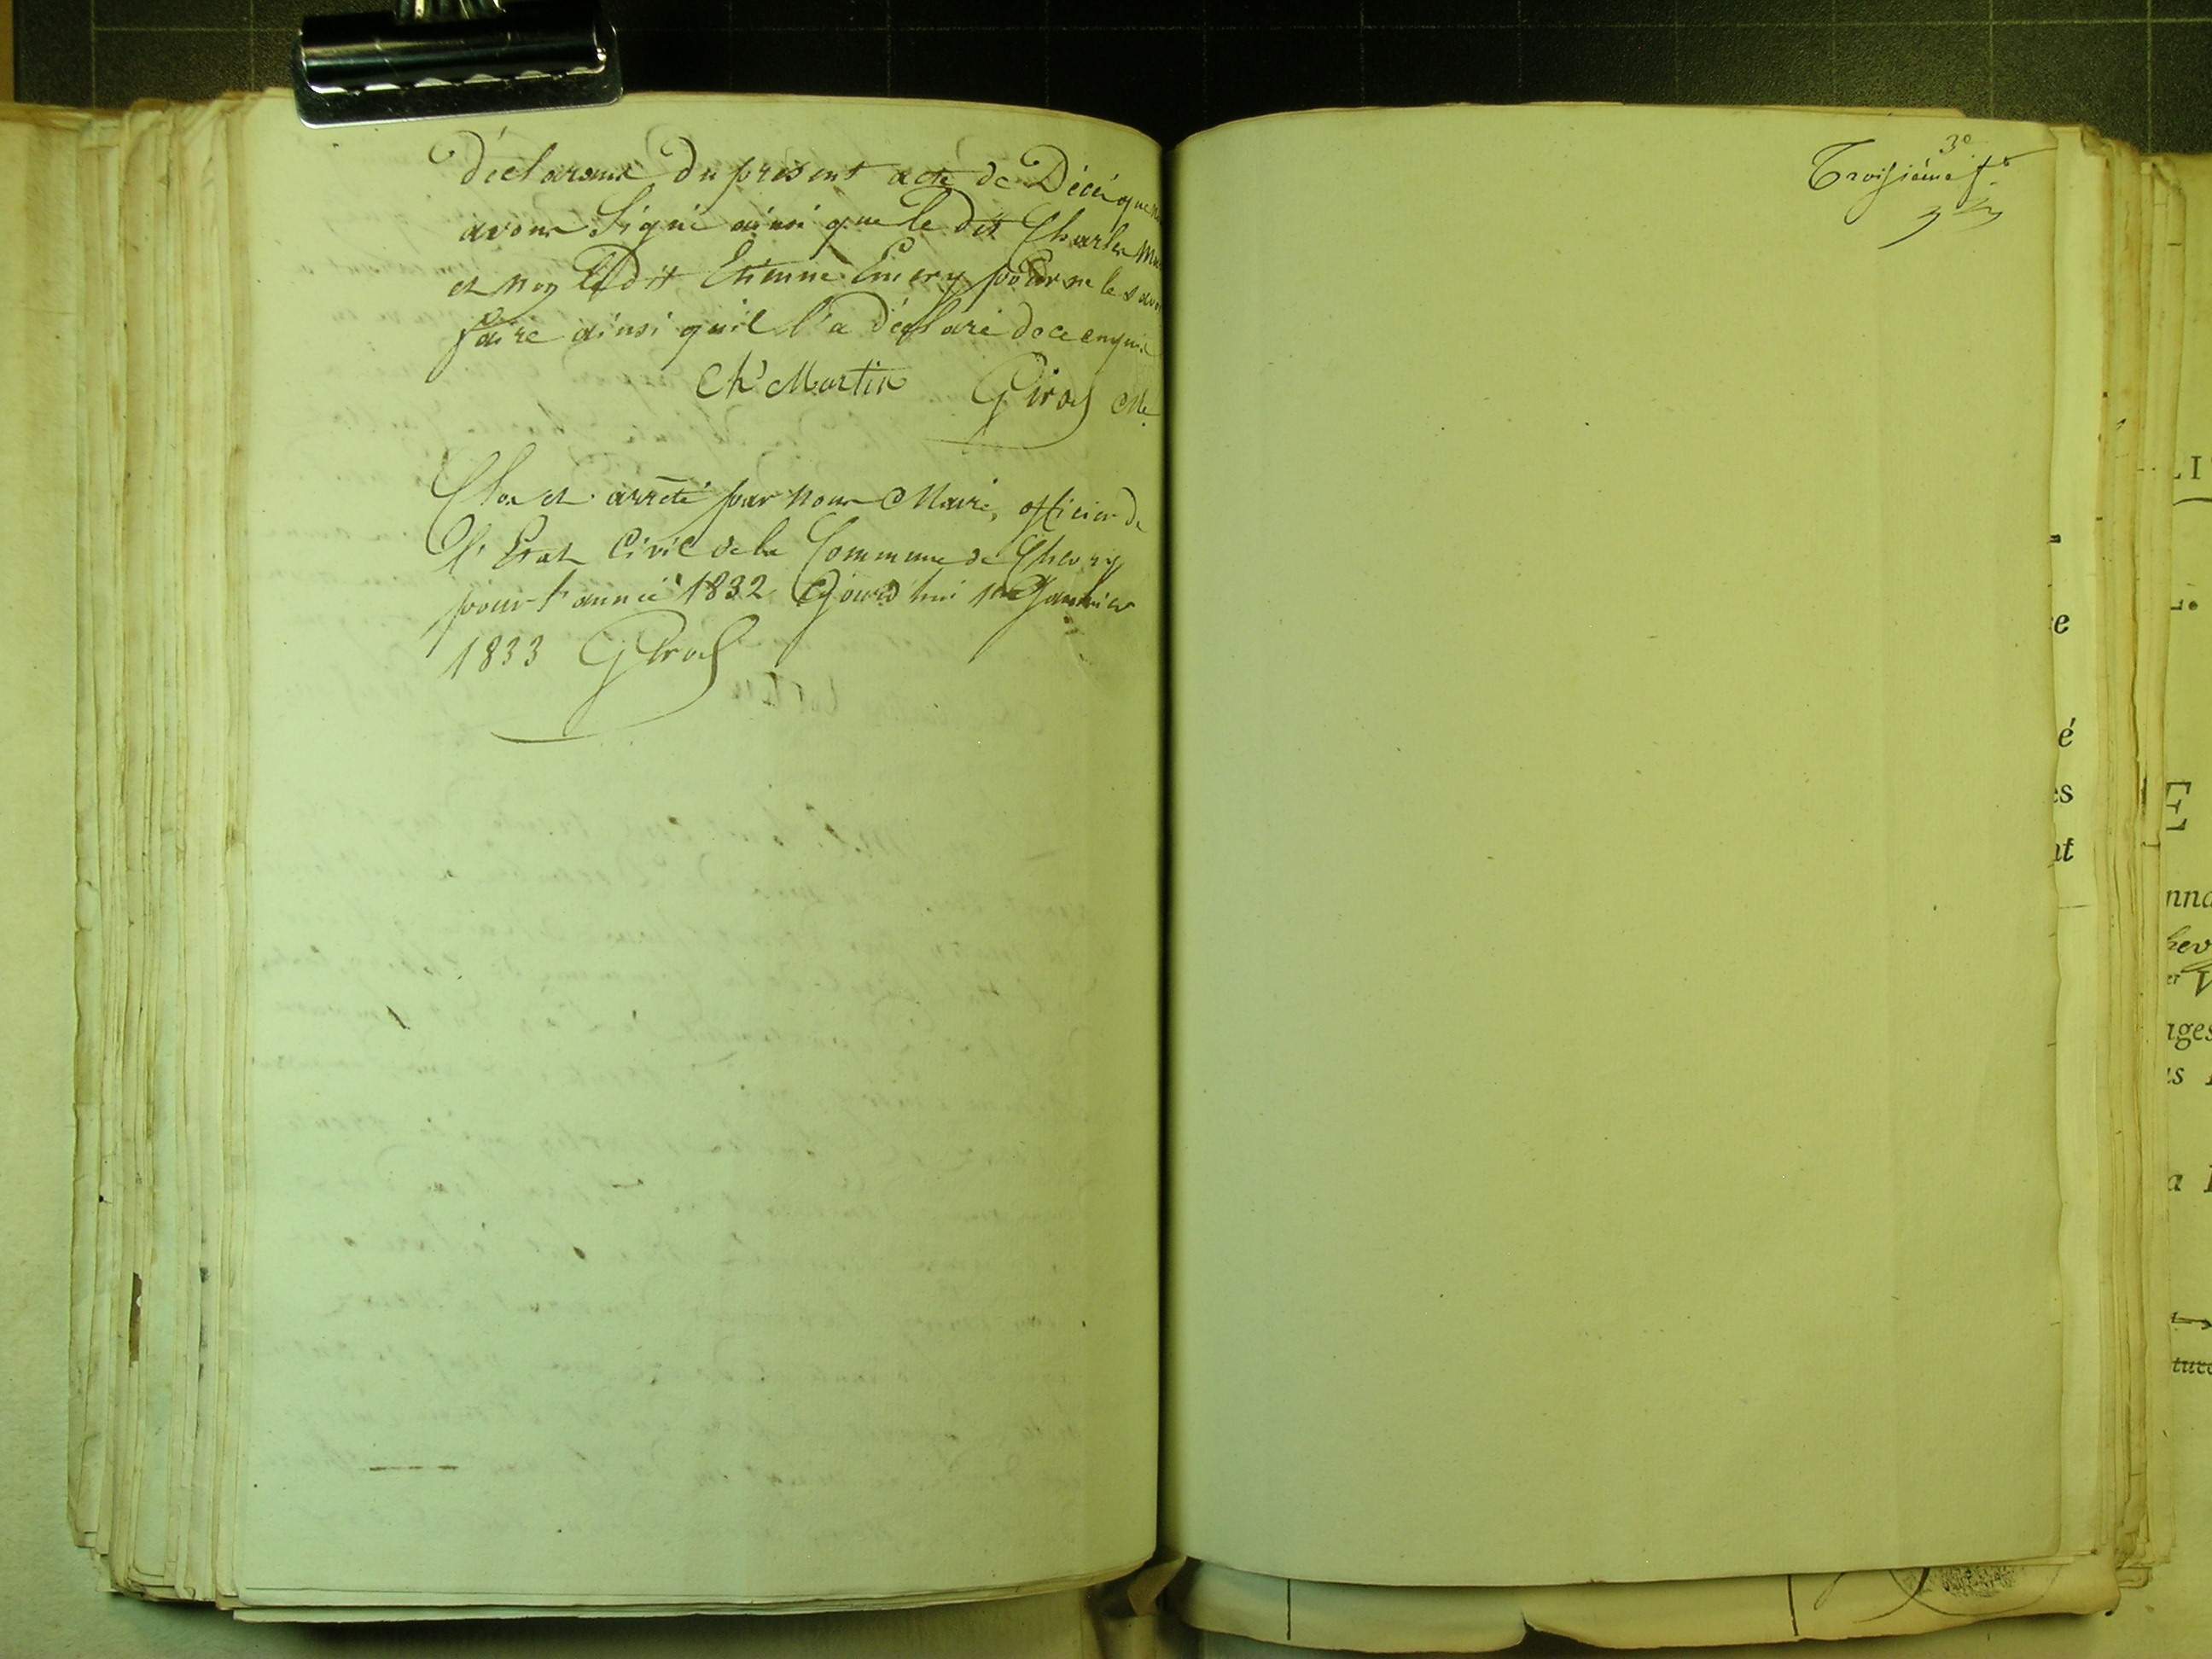 déclarans du présent acte de Décé que
avons Signé ainsi que le dit Charles
et non le dit Etienne Emery pour ne le savoir
faire ainsi qu'il l'a déclaré de ce enquis
Ch' Martin Girod Me
Clos et arrêté par nous Maire, officier de
l'Etat Civil de la Commune de Chevry
pour l'année 1832 Ajourd'hui 1er Janvier
1833 Girod
3e
Troisième